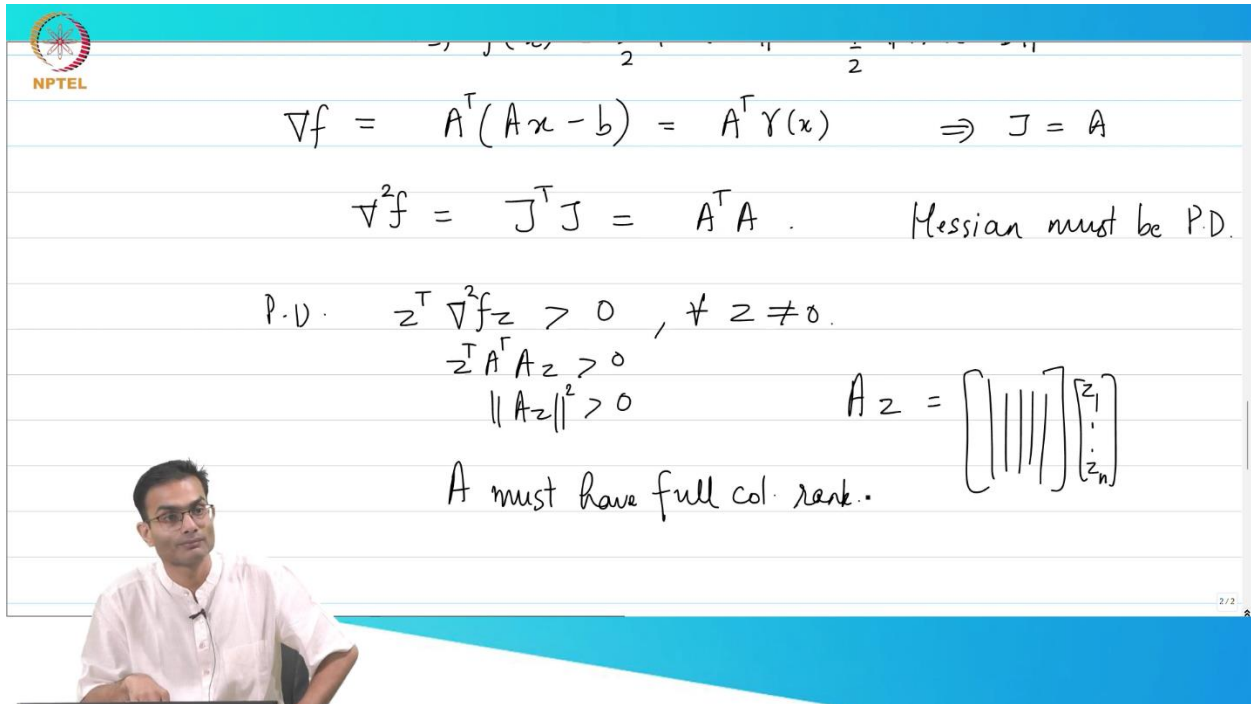 NPTEL
∇f = Aᵀ(Ax − b) = Aᵀ r(x) ⇒ J = A
∇²f = JᵀJ = AᵀA . Hessian must be P.D.
P.D. zᵀ ∇²f z > 0 , ∀ z ≠ 0.
zᵀAᵀA z > 0
‖Az‖² > 0
A z = [|||||] [z₁ . . zₙ]
A must have full col. rank.
2 / 2